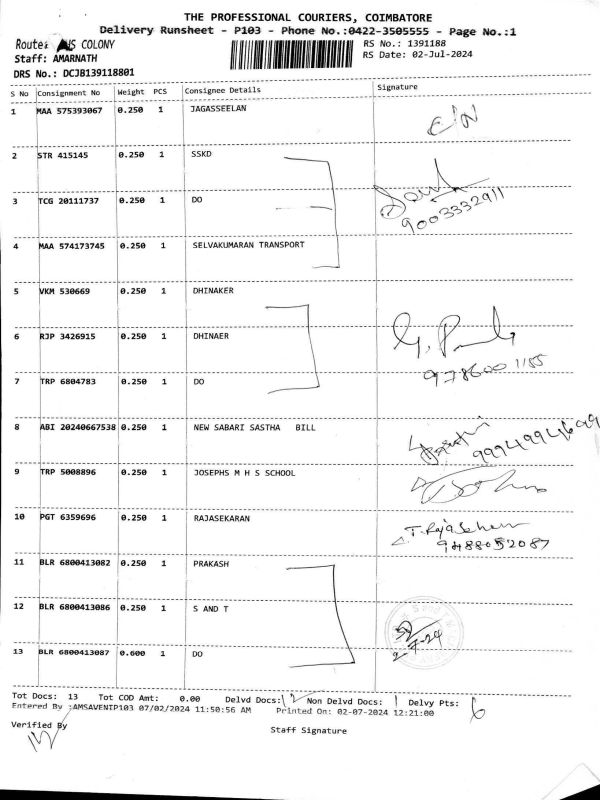 THE PROFESSIONAL COURIERS, COIMBATORE
Delivery Runsheet - P103 - Phone No.:0422-3505555 - Page No.:1
Route: COLONY
RS No.: 1391188
Staff: AMARNATH
RS Date: 02-Jul-2024
DRS No.: DCJB139118801
S No Consignment No Weight PCS Consignee Details Signature
1 MAA 575393067 0.250 1 JAGASSEELAN
2 STR 415145 0.250 1 SSKD
3 TCG 20111737 0.250 1 DO
9003332911
4 MAA 574173745 0.250 1 SELVAKUMARAN TRANSPORT
5 VKM 530669 0.250 1 DHINAKER
6 RJP 3426915 0.250 1 DHINAER
9786001155
7 TRP 6804783 0.250 1 DO
8 ABI 20240667538 0.250 1 NEW SABARI SASTHA BILL
9 TRP 5008896 0.250 1 JOSEPHS M H S SCHOOL
10 PGT 6359696 0.250 1 RAJASEKARAN T. Rajasekaran
9488052087
11 BLR 6800413082 0.250 1 PRAKASH
12 BLR 6800413086 0.250 1 S AND T
2-7-24
13 BLR 6800413087 0.600 1 DO
Tot Docs: 13 Tot COD Amt: 0.00 Delvd Docs: 12 Non Delvd Docs: 1 Delvy Pts: 6
Entered By :AMSAVENIP103 07/02/2024 11:50:56 AM Printed On: 02-07-2024 12:21:00
Verified By
Staff Signature